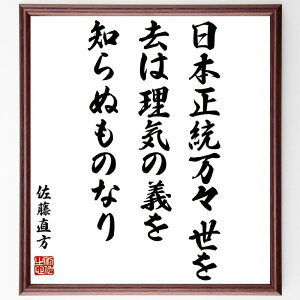 日本正統万々世を
去は理気の義を
知らぬものなり
佐藤直方